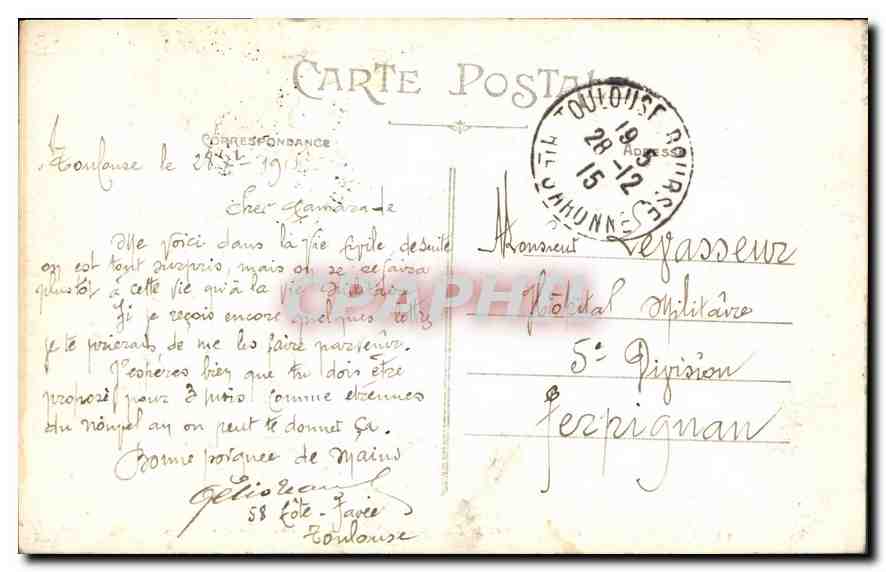 CARTE POSTALE
CORRESPONDANCE
ADRESSE
TOULOUSE BOURSE
19 5
28-12
15
Hte GARONNE
Toulouse le 28
Cher Camarade
Me voici dans la vie civile, de suite
on est tout surpris, mais on se refaira
plustôt à cette vie qu'à la vie militaire.
Si je reçois encore quelques lettres
je te prierais de me les faire parvenir.
J'espères bien que tu dois être
proposé pour 3 mois comme etrennes
du nouvel an on peut te donner ça.
Bonne poignee de mains
58 Côte-Pavée
Toulouse
Monsieur Levasseur
Hôpital Militaire
5e Division
Perpignan
CPAPHIL